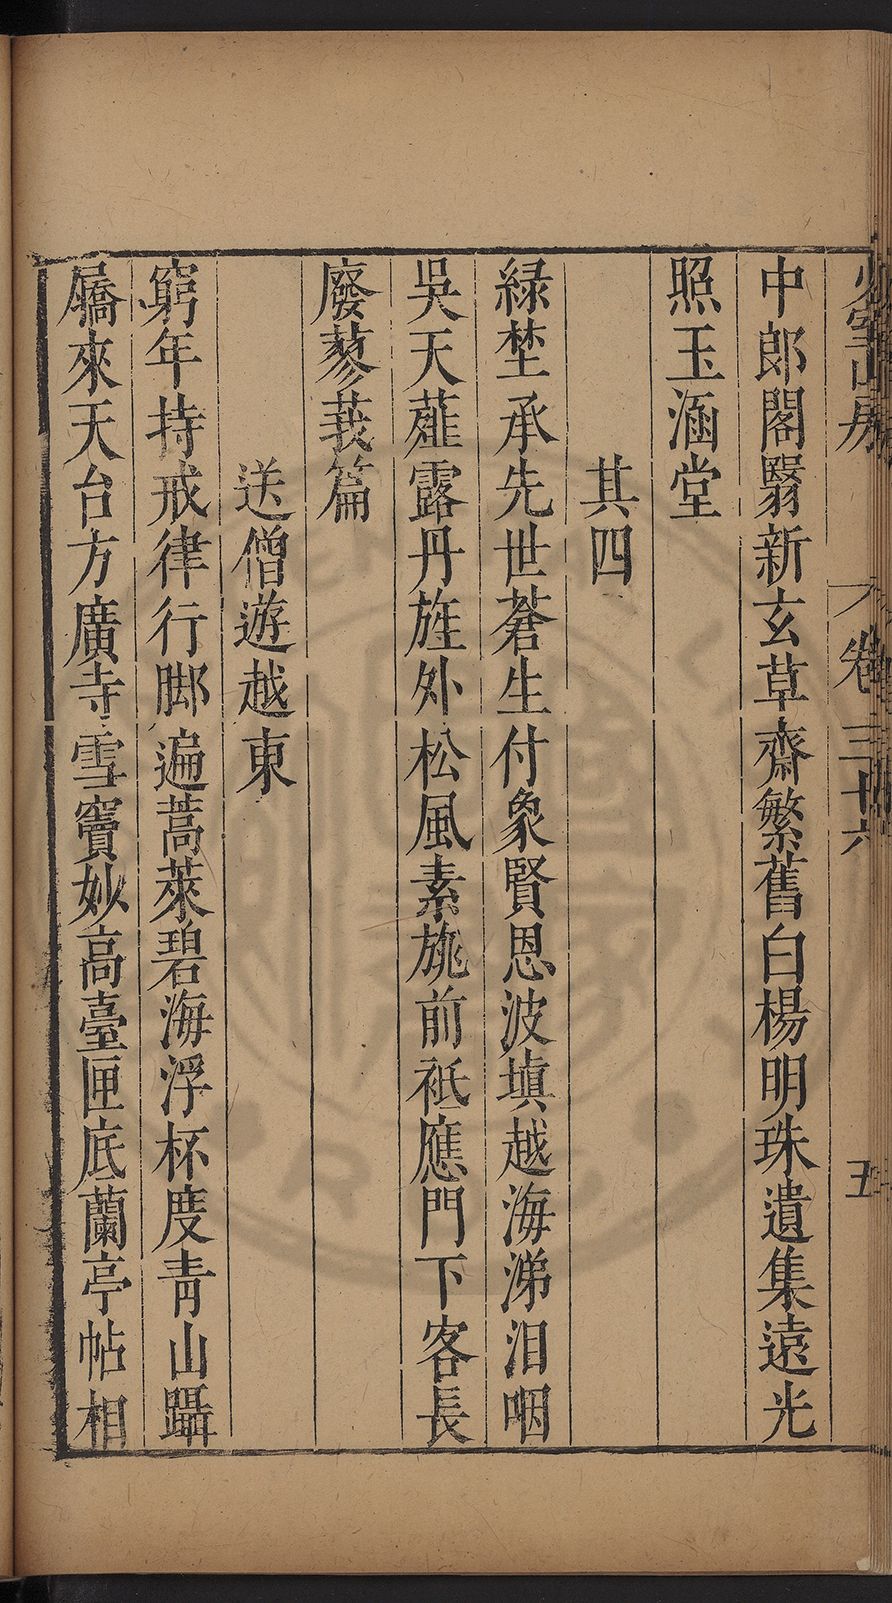 少室山房
卷三十六
五
中郎閣翳新玄草齋繁舊白楊明珠遺集遠光
照玉涵堂
其四
緑埜承先世蒼生付象賢恩波填越海涕泪咽
吳天薤露丹旌外松風素旐前衹應門下客長
廢蓼莪篇
送僧遊越東
窮年持戒律行脚遍蒿萊碧海浮杯度青山躡
屩來天台方廣寺雪竇妙高臺匣底蘭亭帖相